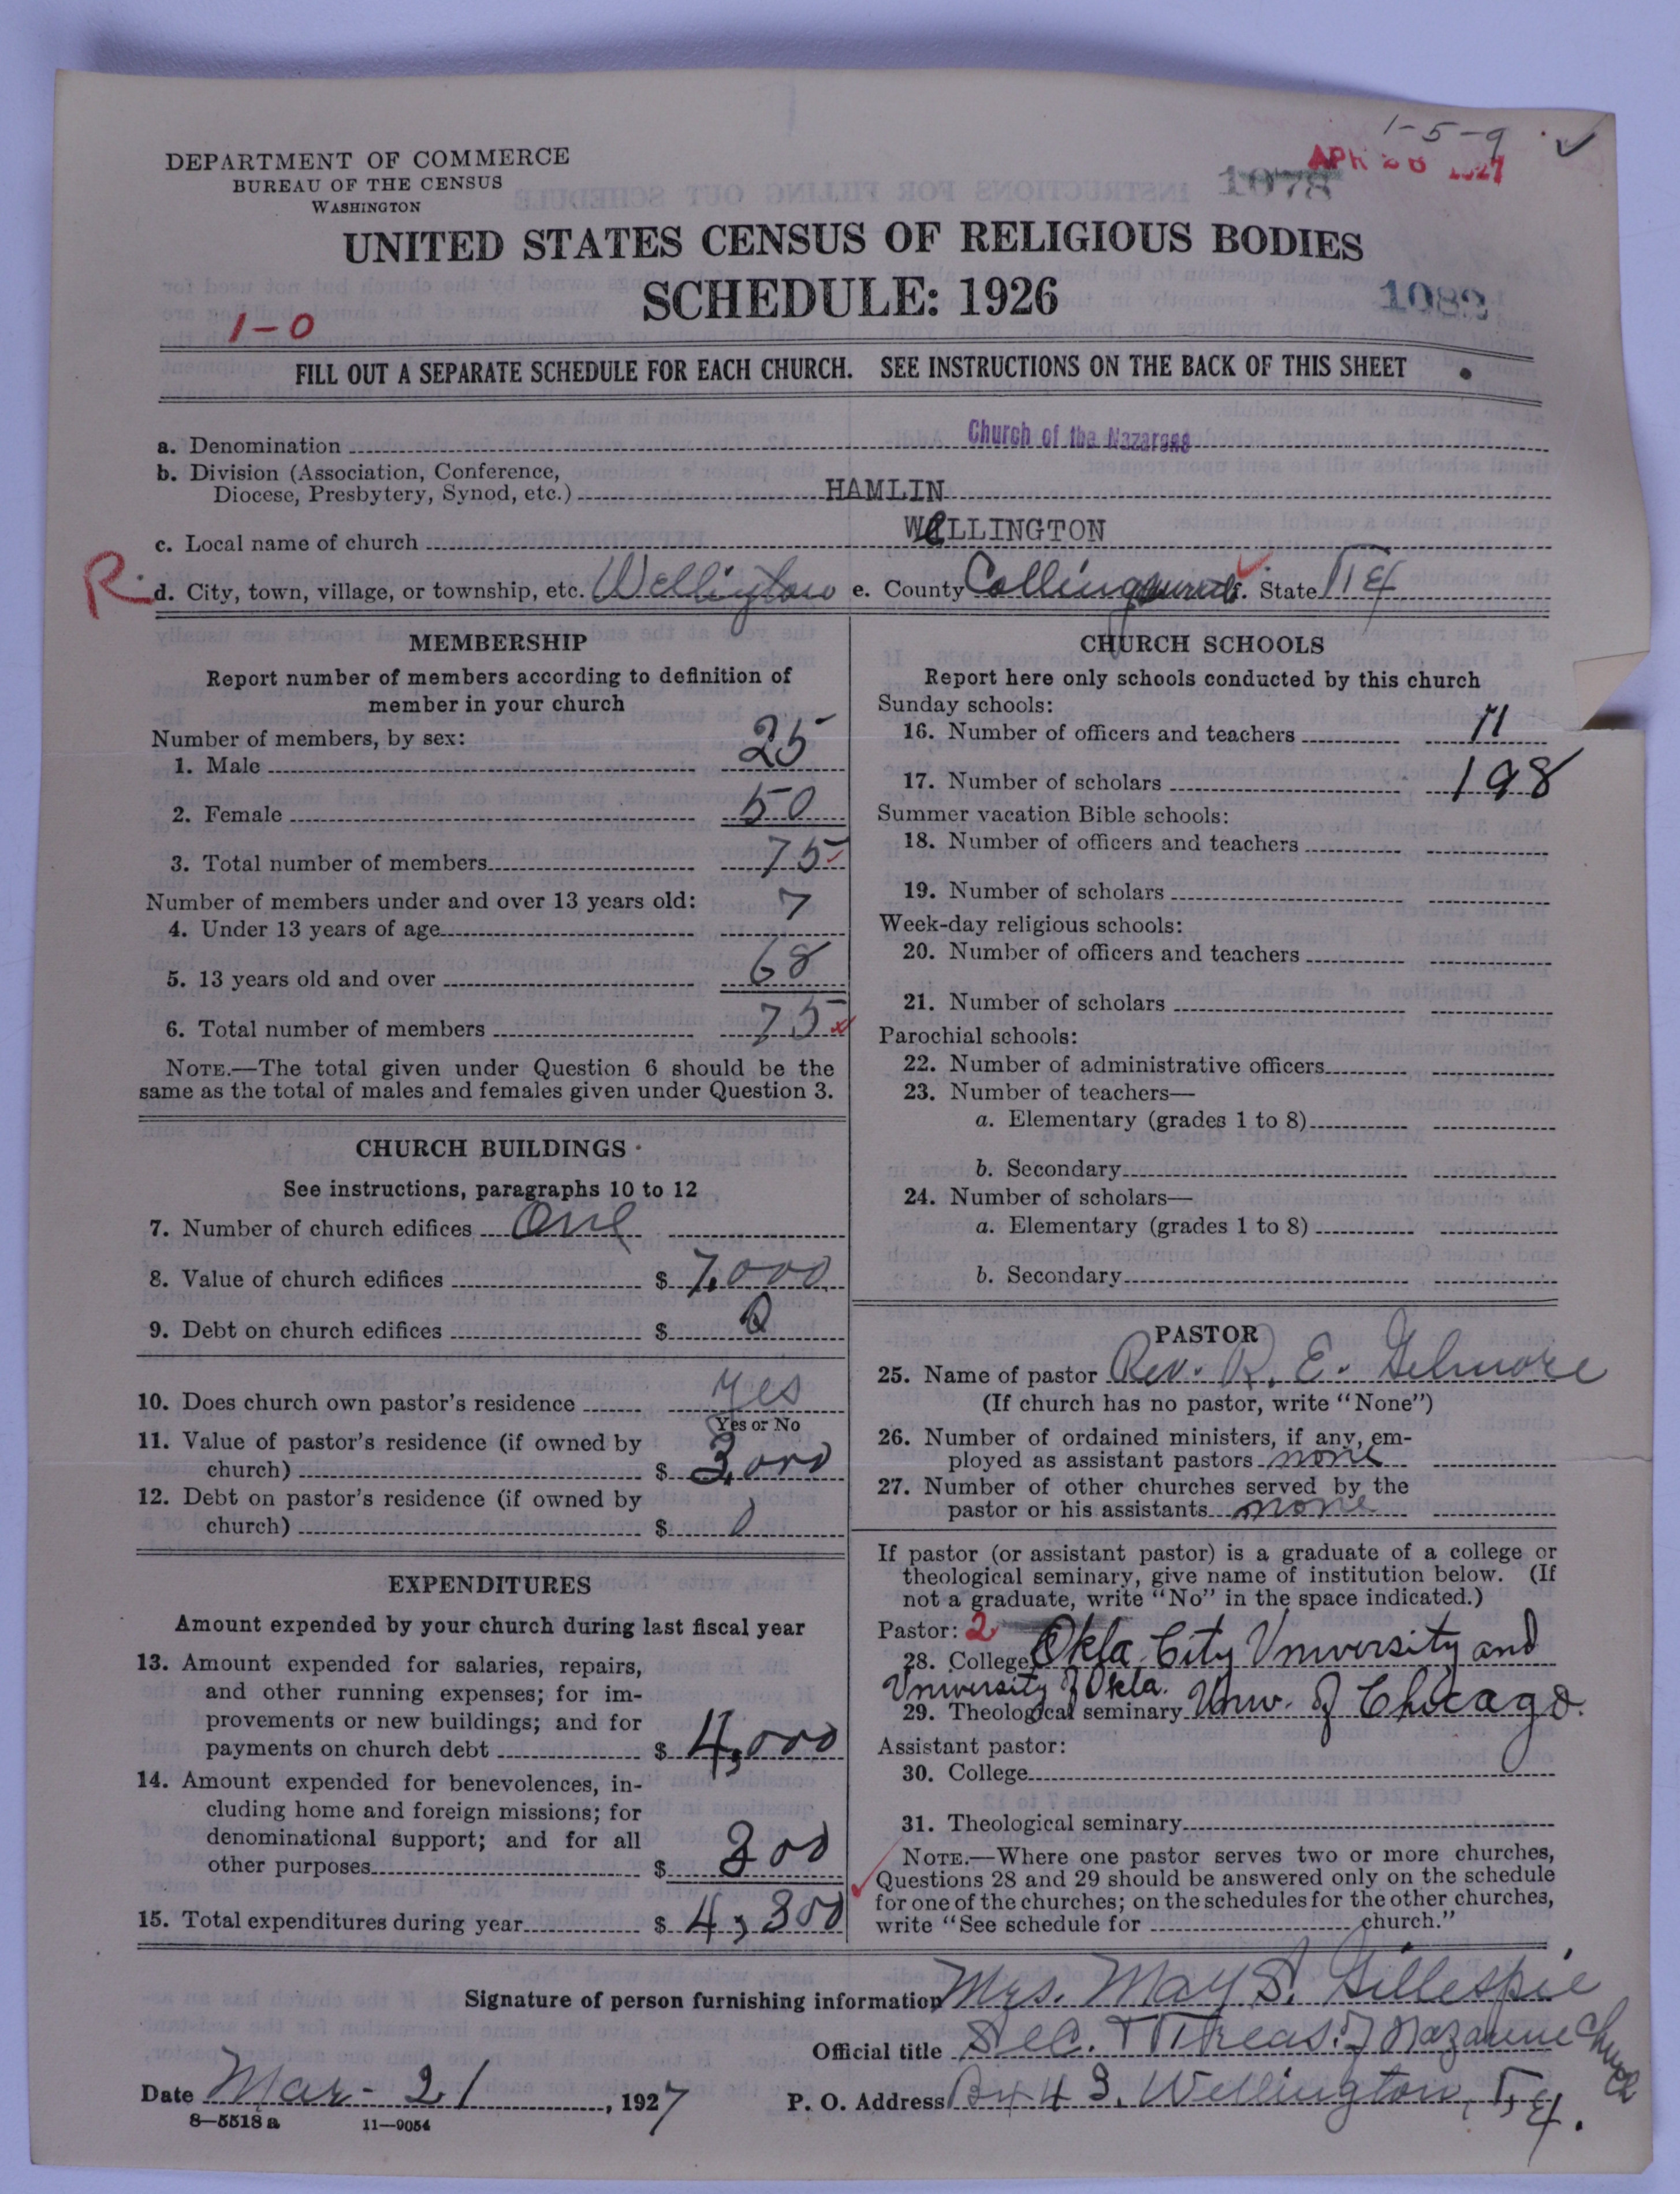 1-5-9
APR 26 1927
1078
DEPARTMENT OF COMMERCE
BUREAU OF THE CENSUS
WASHINGTON
UNITED STATES CENSUS OF RELIGIOUS BODIES
SCHEDULE: 1926
1082
1-0
FILL OUT A SEPARATE SCHEDULE FOR EACH CHURCH. SEE INSTRUCTIONS ON THE BACK OF THIS SHEET
a. Denomination Church of the Nazarene
b. Division (Association, Conference,
Diocese, Presbytery, Synod, etc.) HAMLIN
c. Local name of church WELLINGTON
R d. City, town, village, or township, etc. Wellington e. County Collingsworth f. State Tex
MEMBERSHIP
Report number of members according to definition of
member in your church
Number of members, by sex:
1. Male 25
2. Female 50
3. Total number of members 75
Number of members under and over 13 years old:
4. Under 13 years of age 7
5. 13 years old and over 68
6. Total number of members 75
NOTE.—The total given under Question 6 should be the
same as the total of males and females given under Question 3.
CHURCH BUILDINGS
See instructions, paragraphs 10 to 12
7. Number of church edifices One
8. Value of church edifices $ 7,000
9. Debt on church edifices $ 0
10. Does church own pastor's residence Yes
Yes or No
11. Value of pastor's residence (if owned by
church) $ 3,000
12. Debt on pastor's residence (if owned by
church) $ 0
EXPENDITURES
Amount expended by your church during last fiscal year
13. Amount expended for salaries, repairs,
and other running expenses; for im-
provements or new buildings; and for
payments on church debt $ 4,000
14. Amount expended for benevolences, in-
cluding home and foreign missions; for
denominational support; and for all
other purposes $ 300
15. Total expenditures during year $ 4,300
CHURCH SCHOOLS
Report here only schools conducted by this church
Sunday schools:
16. Number of officers and teachers 11
17. Number of scholars 198
Summer vacation Bible schools:
18. Number of officers and teachers
19. Number of scholars
Week-day religious schools:
20. Number of officers and teachers
21. Number of scholars
Parochial schools:
22. Number of administrative officers
23. Number of teachers—
a. Elementary (grades 1 to 8)
b. Secondary
24. Number of scholars—
a. Elementary (grades 1 to 8)
b. Secondary
PASTOR
25. Name of pastor Rev. R. E. Gilmore
(If church has no pastor, write "None")
26. Number of ordained ministers, if any, em-
ployed as assistant pastors none
27. Number of other churches served by the
pastor or his assistants none
If pastor (or assistant pastor) is a graduate of a college or
theological seminary, give name of institution below. (If
not a graduate, write "No" in the space indicated.)
Pastor: 2
28. College Okla. City University and
University of Okla.
29. Theological seminary Univ. of Chicago.
Assistant pastor:
30. College
31. Theological seminary
NOTE.—Where one pastor serves two or more churches,
Questions 28 and 29 should be answered only on the schedule
for one of the churches; on the schedules for the other churches,
write "See schedule for church."
Signature of person furnishing information Mrs. May S. Gillespie
Official title Sec. & Treas. of Nazarene Church
Date Mar- 21, 1927 P. O. Address Bx 43, Wellington, Tex.
8—5518a 11—9054